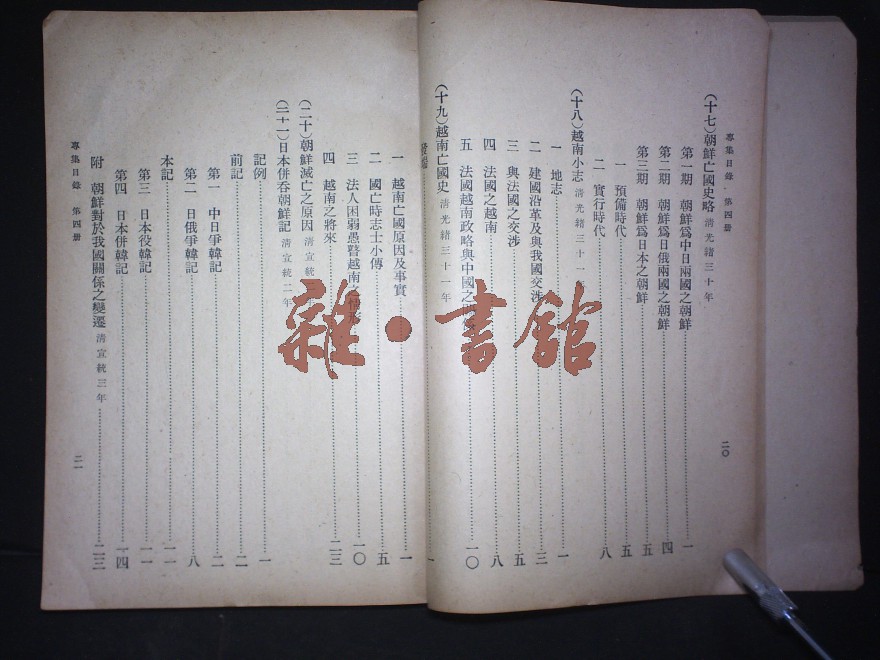 專集目錄 第四册
二〇
(十七)朝鮮亡國史略 清光緒三十年
第一期 朝鮮爲中日兩國之朝鮮 一
第二期 朝鮮爲日俄兩國之朝鮮 四
第三期 朝鮮爲日本之朝鮮 五
一 預備時代 五
二 實行時代 八
(十八)越南小志 清光緒三十一
一 地志 一
二 建國沿革及與我國交涉 三
三 與法國之交涉 五
四 法國之越南 八
五 法國越南政略與中國之 一〇
(十九)越南亡國史 清光緒三十一年
一
一 越南亡國原因及事實 一
二 國亡時志士小傳 五
三 法人困弱愚瞽越南之情形 一〇
四 越南之將來 二三
(二十)朝鮮滅亡之原因 清宣統
(二十一)日本併吞朝鮮記 清宣統二年
記例 一
前記 二
第一 中日爭韓記 二
第二 日俄爭韓記 八
本記 一一
第三 日本役韓記 一一
第四 日本併韓記 一四
附 朝鮮對於我國關係之變遷 清宣統三年 二三
專集目錄 第四册
二一
雜·書館